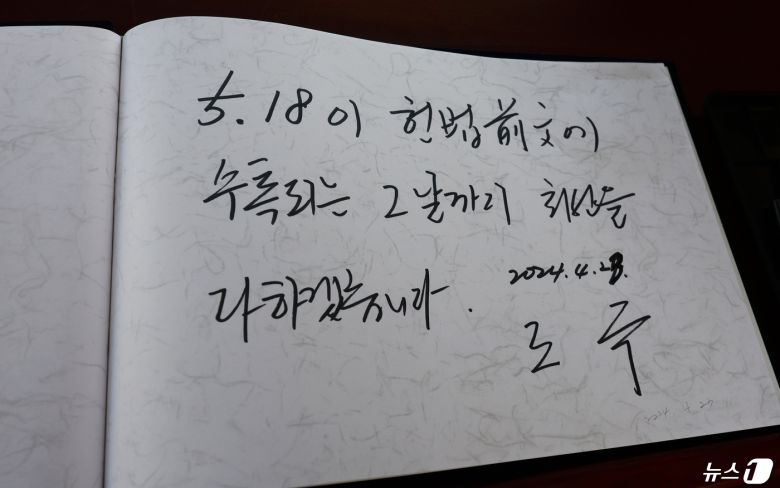 5.18이 헌법前文에
수록되는 그 날까지 최선을
다하겠습니다.
2024.4.23.
뉴스1